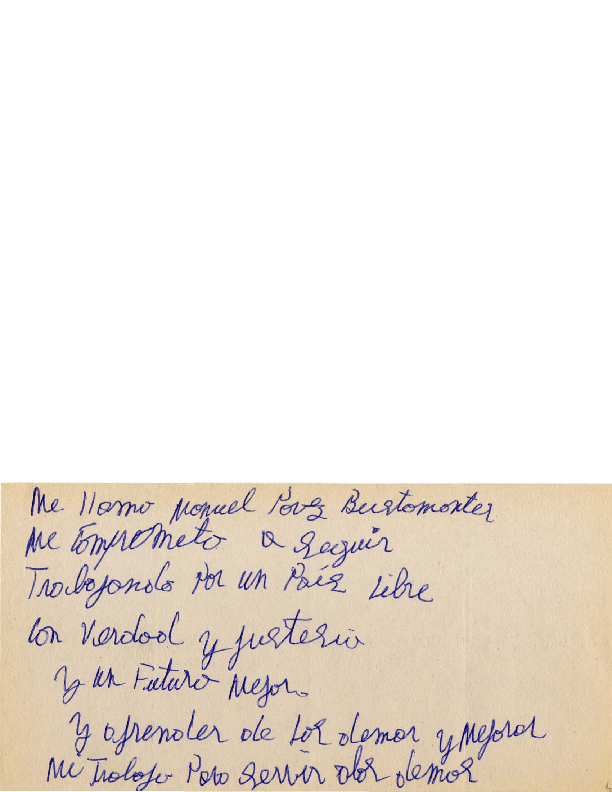 Me llamo Manuel Povez Bustamantez
Me Comprometo a seguir
Trabajando Por un País Libre
Con Verdad y justesia
y un Futuro Mejor.
y aprender de los demas y Mejorar
Mi Trabajo Para servir alos demas